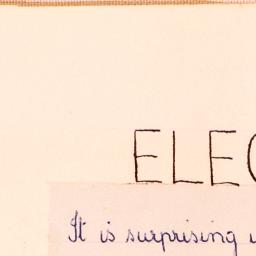 ELEC
It is surprising